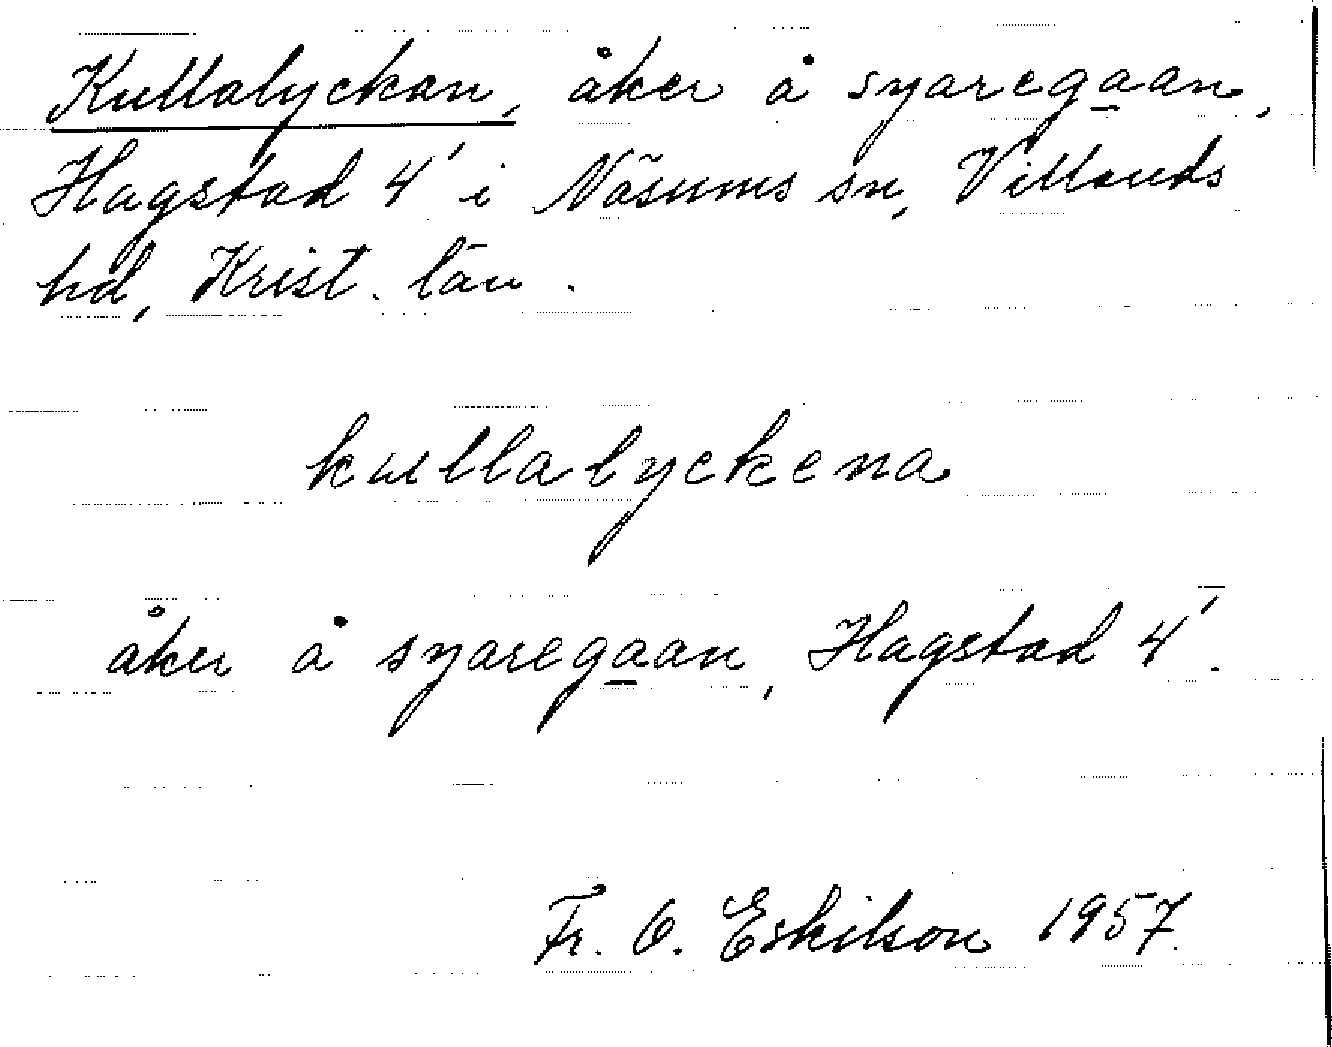 Kullalyckan, åker å syaregaan,
Hagstad 4' i Näsums sn, Villands
hd, Krist. län.
kullalyckena
åker å syaregaan, Hagstad 4'.
Fr. O. Eskilson 1957.